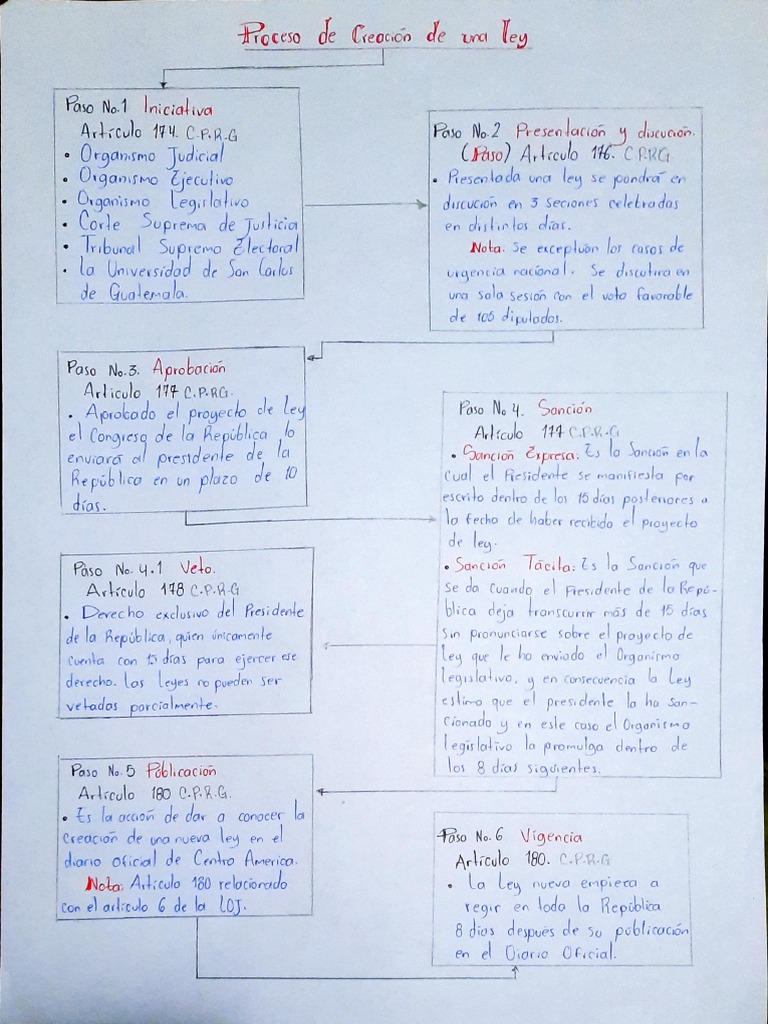 Proceso de Creación de una ley
Paso No.1 Iniciativa
Artículo 174. C.P.R.G
• Organismo Judicial
• Organismo Ejecutivo
• Organismo Legislativo
• Corte Suprema de Justicia
• Tribunal Supremo Electoral
• la Universidad de San Carlos
de Guatemala.
Paso No.2 Presentación y discución.
(Paso) Artículo 176. C.P.R.G.
• Presentada una ley se pondrá en
discución en 3 seciones celebradas
en distintos días.
Nota: Se exceptúan los casos de
urgencia nacional. Se discutira en
una sola sesión con el voto favorable
de 105 diputados.
Paso No.3. Aprobación
Artículo 177 C.P.R.G.
• Aprobado el proyecto de Ley
el Congreso de la República lo
enviará al presidente de la
República en un plazo de 10
días.
Paso No 4. Sanción
Artículo 177 C.P.R.G
• Sanción Expresa: Es la Sanción en la
cual el Presidente se manifiesta por
escrito dentro de los 15 días posteriores a
la fecha de haber recibido el proyecto
de ley.
• Sanción Tácita: Es la Sanción que
se da cuando el Presidente de la Repú-
blica deja transcurrir más de 15 días
sin pronunciarse sobre el proyecto de
ley que le ha enviado el Organismo
legislativo, y en consecuencia la Ley
estima que el presidente la ha San-
cionado y en este caso el Organismo
legislativo la promulga dentro de
los 8 días siguientes.
Paso No. 4.1 Veto.
Artículo 178 C.P.R.G
• Derecho exclusivo del Presidente
de la República, quien únicamente
cuenta con 15 días para ejercer ese
derecho. Las leyes no pueden ser
vetadas parcialmente.
Paso No. 5 Publicación
Artículo 180 C.P.R.G.
• Es la acción de dar a conocer la
creación de una nueva ley en el
diario oficial de Centro America.
Nota: Artículo 180 relacionado
con el artículo 6 de la LOJ.
Paso No. 6 Vigencia
Artículo 180. C.P.R.G
• La Ley nueva empieza a
regir en toda la República
8 días después de su publicación
en el Diario Oficial.